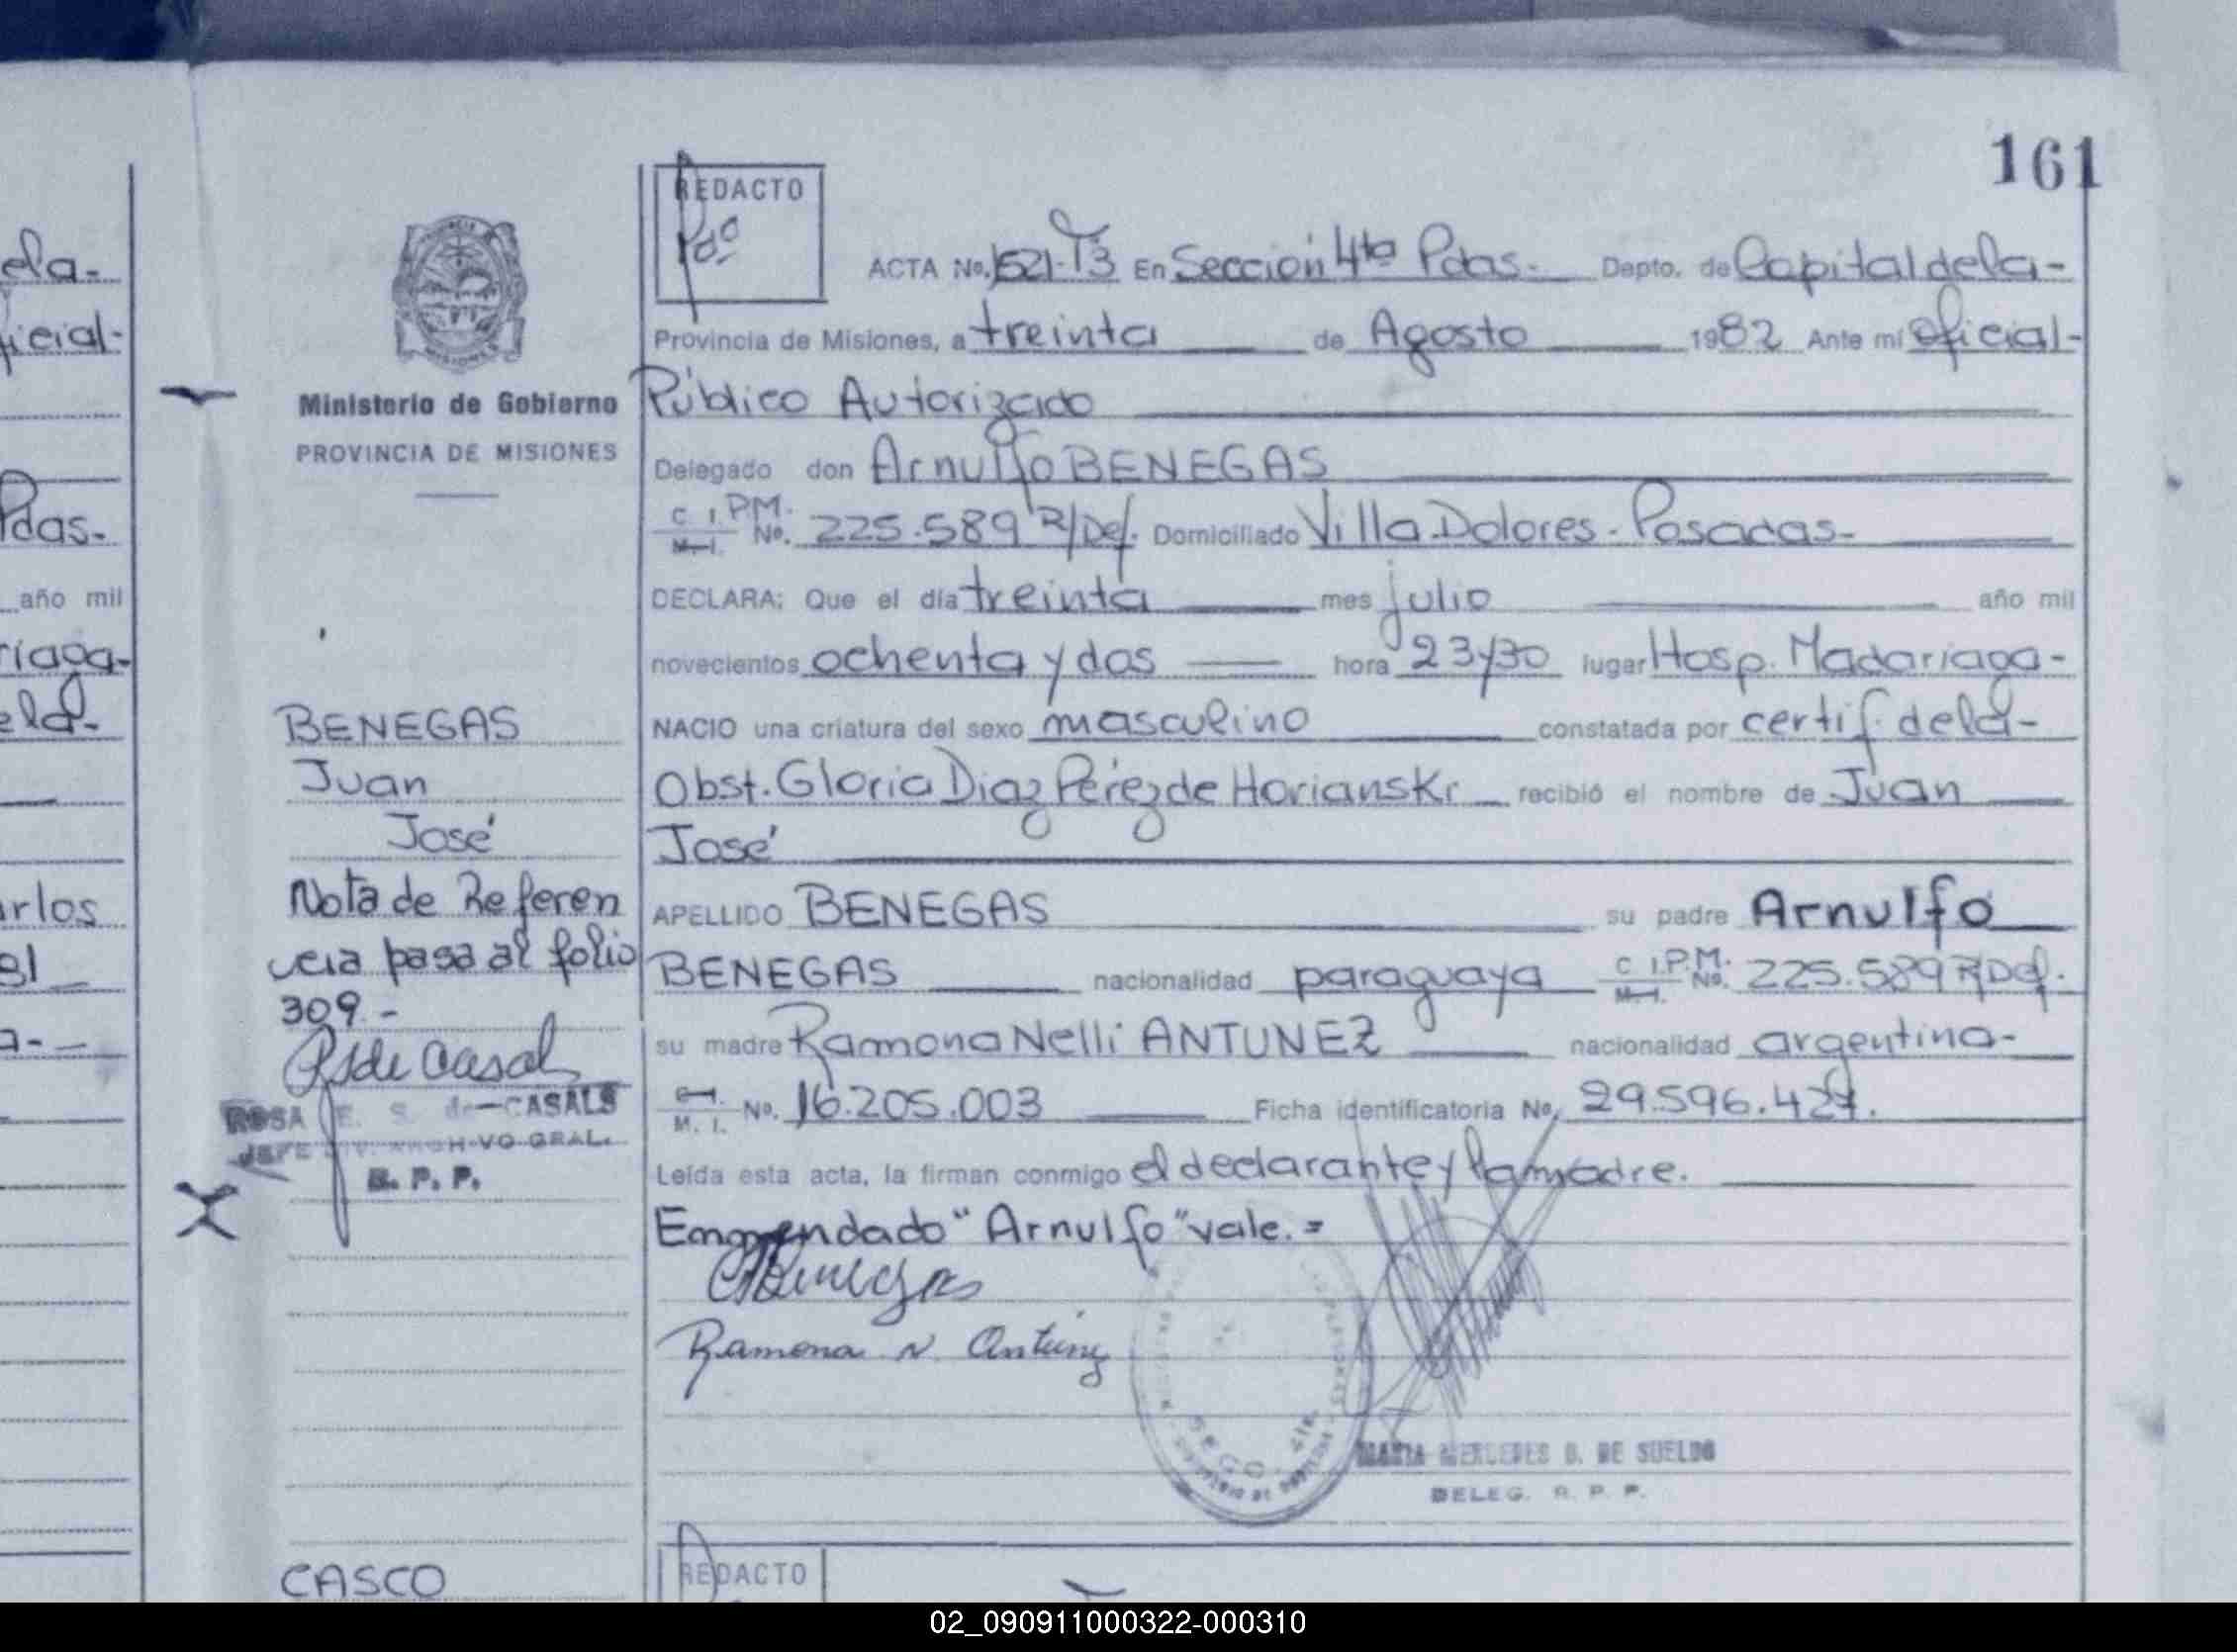 161
REDACTO
Pdo
ACTA No. 1521-T3 En Sección 4ta Pdas.- Depto. de Capital de la-
Provincia de Misiones, a treinta de Agosto 1982 Ante mi Oficial-
Público Autorizado
Delegado don Arnulfo BENEGAS
C. I. P.M. No. 225.589 R/Def. Domiciliado Villa Dolores - Posadas-
M. I.
DECLARA: Que el día treinta mes julio año mil
novecientos ochenta y dos hora 23y30 lugar Hosp. Madariaga-
NACIO una criatura del sexo masculino constatada por certif. de la-
Obst. Gloria Díaz Pérez de Horianski recibió el nombre de Juan
José
APELLIDO BENEGAS su padre Arnulfo
BENEGAS nacionalidad paraguaya C. I. P.M. No. 225.589 R/Def.
M. I.
su madre Ramona Nelli ANTUNEZ nacionalidad argentina-
C. I.
M. I. No. 16.205.003 Ficha identificatoria No. 29.596.427.
Leída esta acta, la firman conmigo el declarante y la madre.
Enmendado "Arnulfo" vale.=
ABenegas
Ramona N. Antunez
SECO. 4ta.
MARIA MERCEDES D. DE SUELDO
DELEG. R. P. P.
REDACTO
MISIONES
Ministerio de Gobierno
PROVINCIA DE MISIONES
BENEGAS
Juan
José
Nota de Referen
cia pasa al folio
309.-
RSde Casals
ROSA E. S. de CASALS
JEFE DIV. ARCHIVO GRAL.
R. P. P.
CASCO
ela-
icial-
Pdas-
año mil
riaga-
ela-
arlos
el
a-
02_090911000322-000310